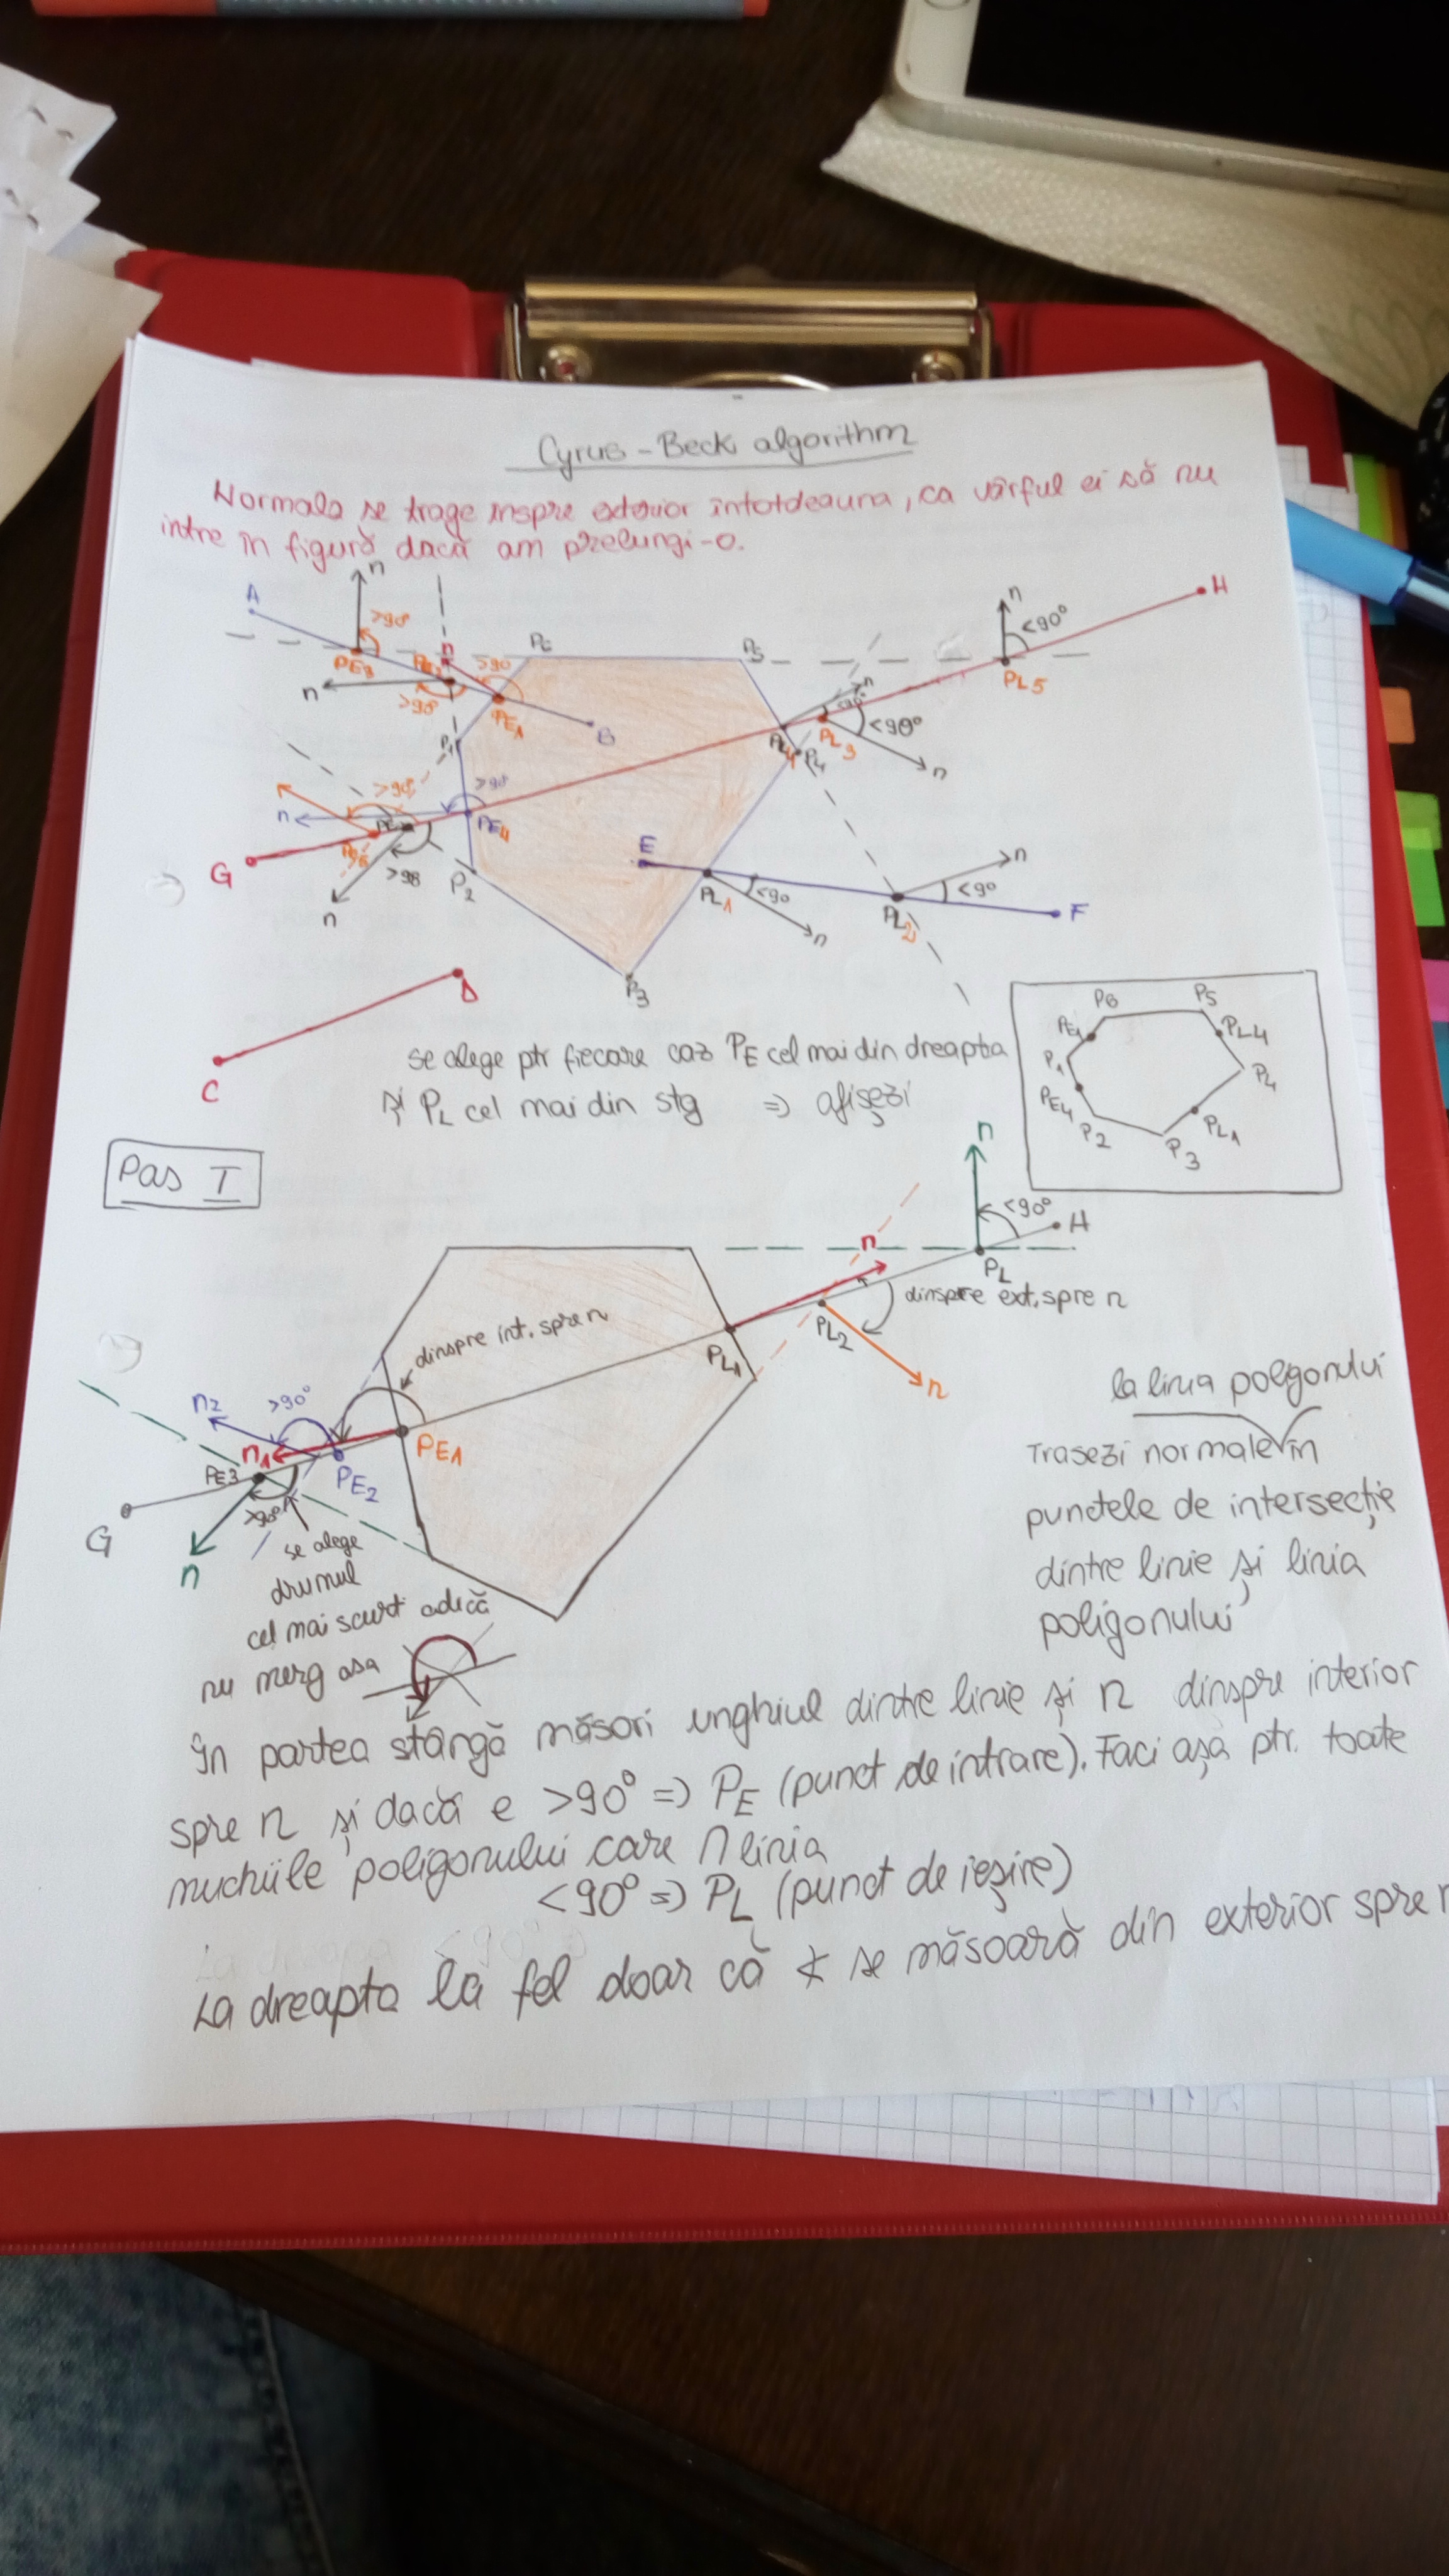 Cyrus - Beck algorithm
Normala se trage înspre exterior întotdeauna, ca vârful ei să nu
intre în figură dacă am prelungi-o.
A
n
>90°
PE3
n
n
>90
>90°
PE1
B
P6
P5
P1
n
H
<90°
PL5
n
<90°
PL4
PL3
P4
n
>90°
n
>90°
PE4
G
>90
n
P2
E
PL1
<90
n
PL2
n
<90
F
P3
C
D
se alege ptr fiecare caz PE cel mai din dreapta
și PL cel mai din stg => afișezi
P6
P5
PE1
PL4
P1
P4
PE4
PL1
P2
P3
Pas I
n
<90°
H
n
PL
dinspre ext. spre n
dinspre int. spre n
PL1
PL2
n
n2
>90°
n1
PE3
PE2
PE1
G
>90°
n
se alege
drumul
cel mai scurt adică
nu merg așa
la linia poligonului
Trasezi normale în
punctele de intersecție
dintre linie și linia
poligonului
În partea stângă măsori unghiul dintre linie și n dinspre interior
spre n și dacă e >90° => PE (punct de intrare). Faci așa ptr. toate
muchiile poligonului care ∩ linia
<90° => PL (punct de ieșire)
La dreapta la fel doar că ∡ se măsoară din exterior spre n